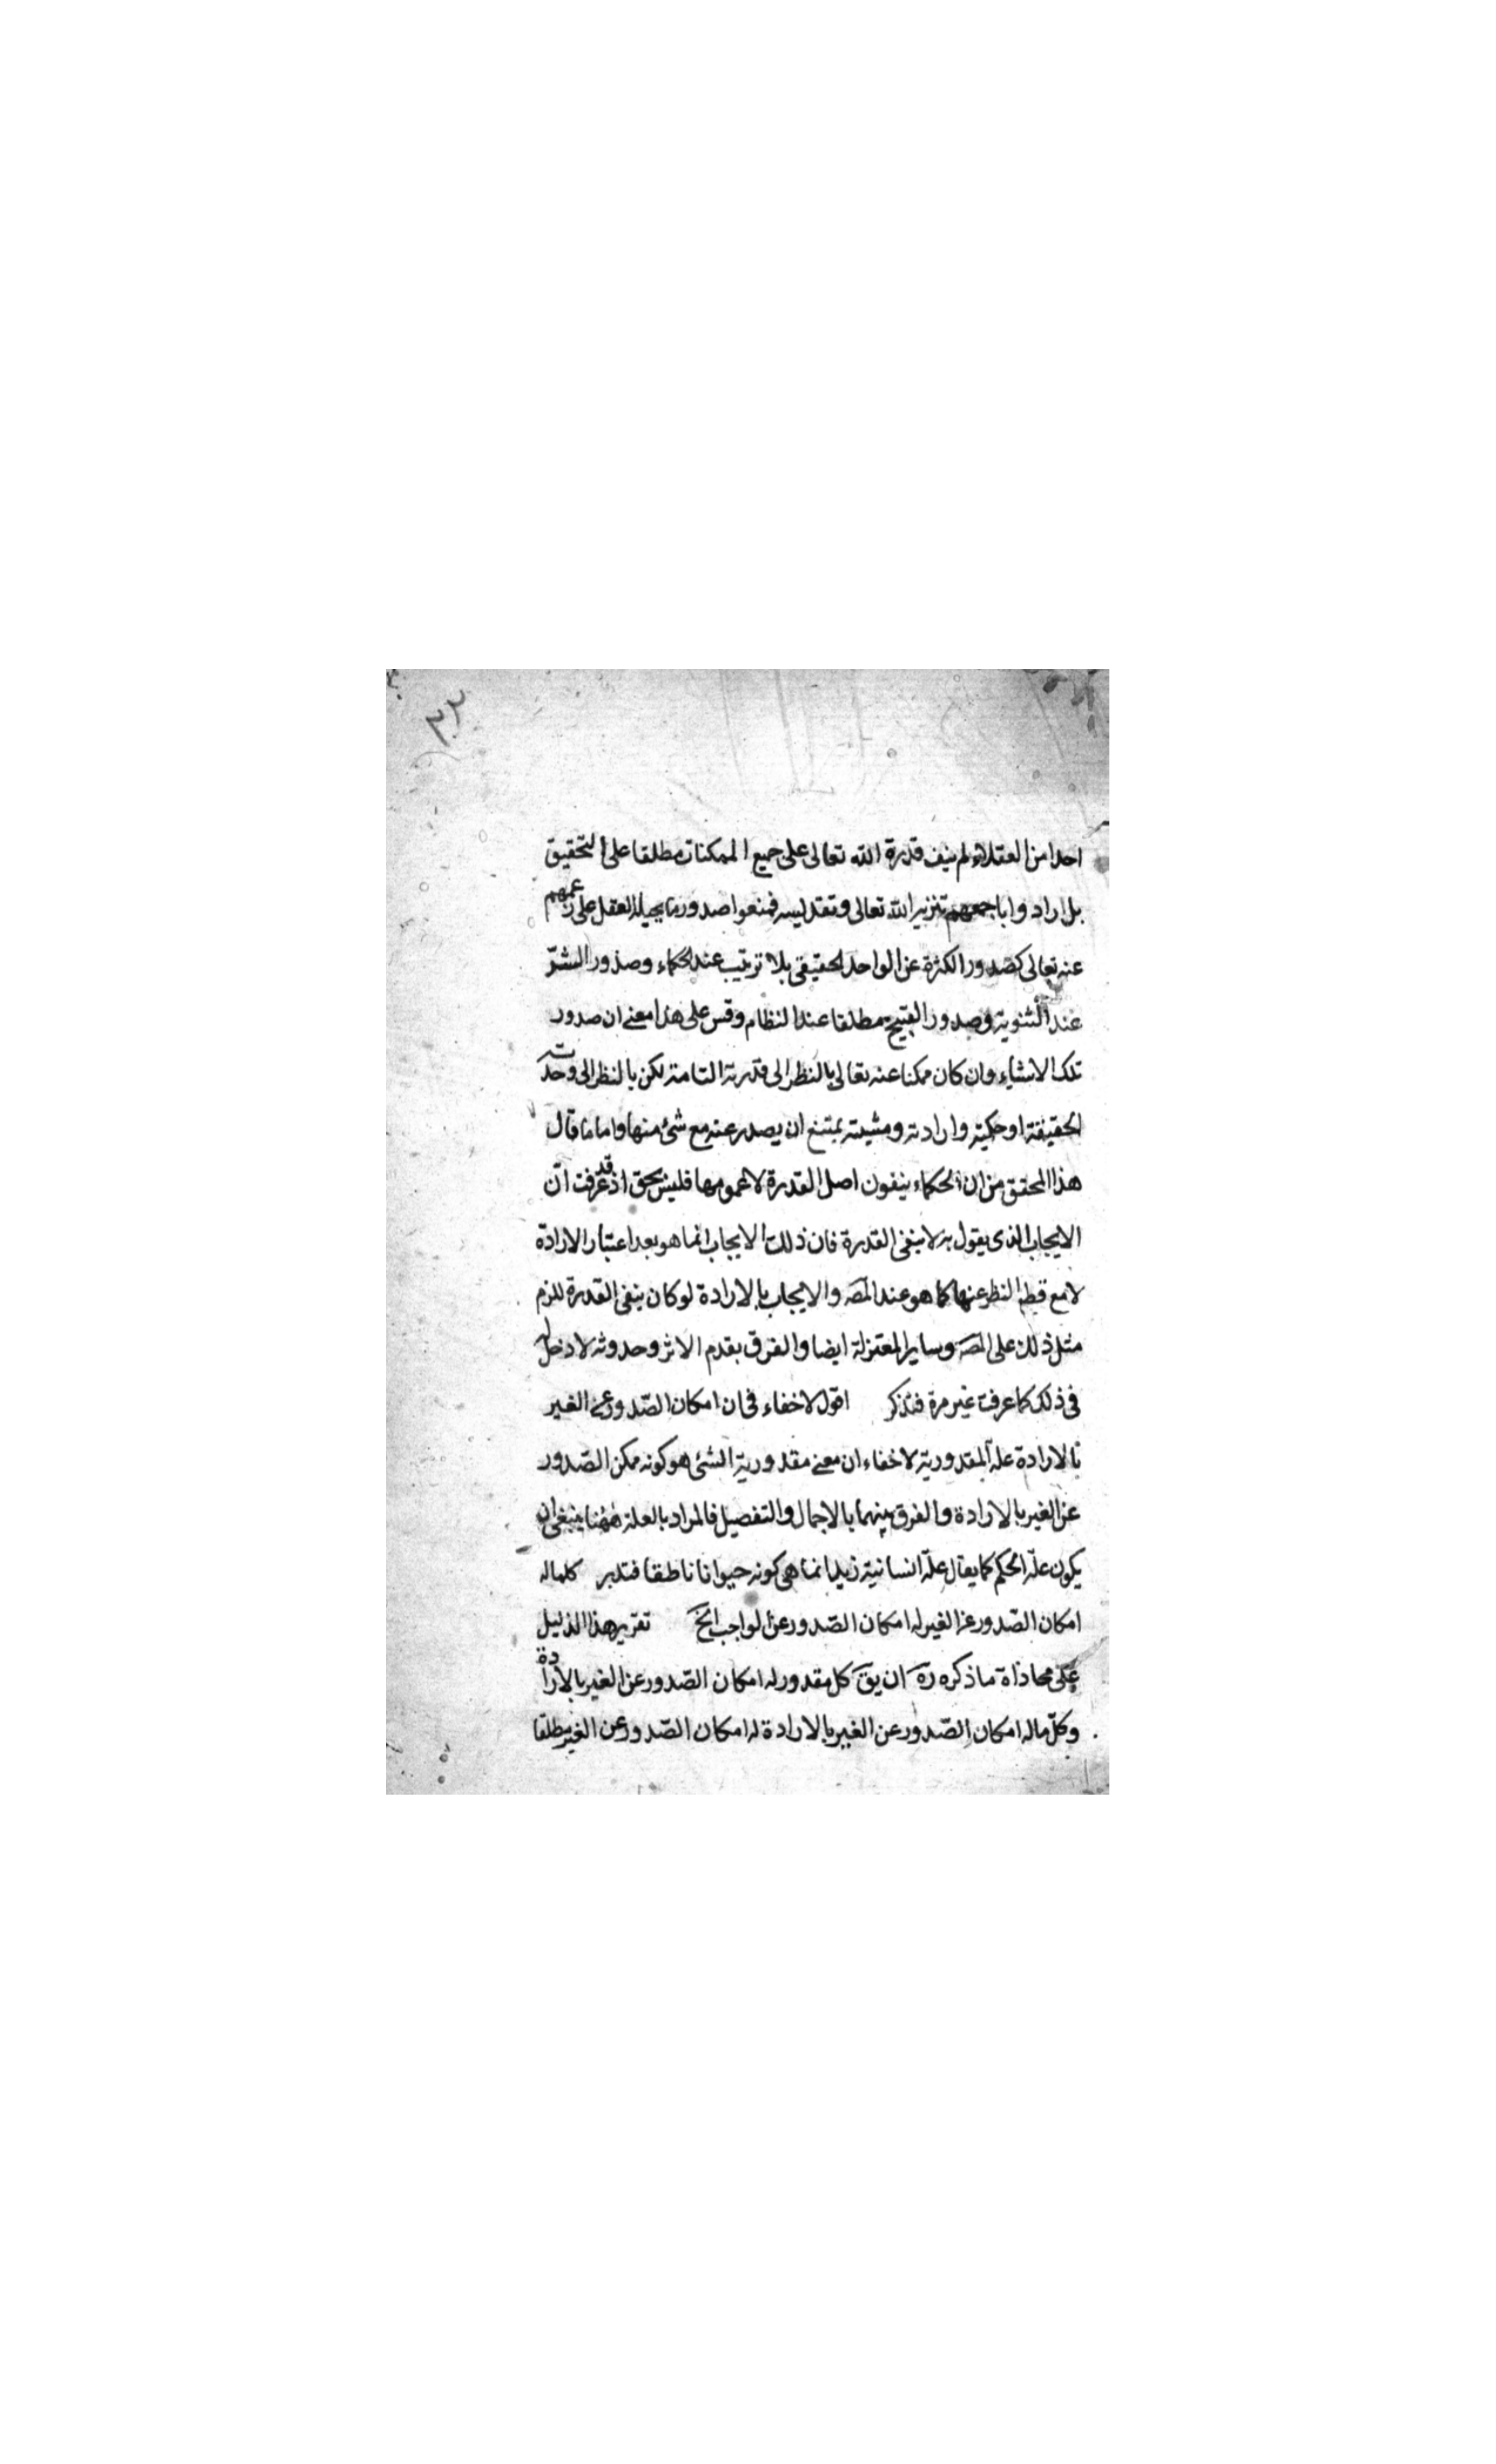 ٣٢
احدا من العقلاء لم ينف قدرة الله تعالى على جميع الممكنات مطلقا على التحقيق
بل ارادوا باجمعهم تنزيه الله تعالى وتقديسه فمنعوا صدور ما يحيله العقل على زعمهم
عنه تعالى كصدور الكثرة عن الواحد الحقيقي بلا ترتيب عند الحكماء وصدور الشرّ
عند الثنوية وصدور القبيح مطلقا عند النظام وقس على هذا معنى ان صدور
تلك الاشياء وان كان ممكنا عنه تعالى بالنظر الى قدرته التامة لكن بالنظر الى وحدته
الحقيقة او حكمته وارادته ومشيته يمتنع ان يصدر عنه مع شئ منها واما ما قال
هذا المحقق من ان الحكماء ينفون اصل القدرة لا عمومها فليس بحق اذ قد عرفت انّ
الايجاب الذى يقول به لا ينفى القدرة فان ذلك الايجاب انما هو بعد اعتبار الارادة
لا مع قطع النظر عنها كما هو عند المصه والايجاب بالارادة لو كان ينفى القدرة للزم
مثل ذلك على المصه وساير المعتزلة ايضا والفرق بقدم الاثر وحدوثه لا دخل له
فى ذلك كما عرفت غير مرة فتذكر اقول لا خفاء فى ان امكان الصّدور عن الغير
بالارادة علة المقدورية لا خفاء ان معنى مقدورية الشئ هو كونه ممكن الصّدور
عن الغير بالارادة والفرق بينهما بالاجمال والتفصيل فالمراد بالعلة ههنا ينبغى ان
يكون علّة الحكم كما يقال علّة انسانية زيد انما هى كونه حيوانا ناطقا فتدبر كلما له
امكان الصّدور عن الغير له امكان الصّدور عن الواجب الخ تقرير هذا الدليل
على محاذاة ما ذكره ره ان يق كل مقدور له امكان الصّدور عن الغير بالارادة
وكلّ ما له امكان الصّدور عن الغير بالارادة له امكان الصّدور عن الغير مطلقا